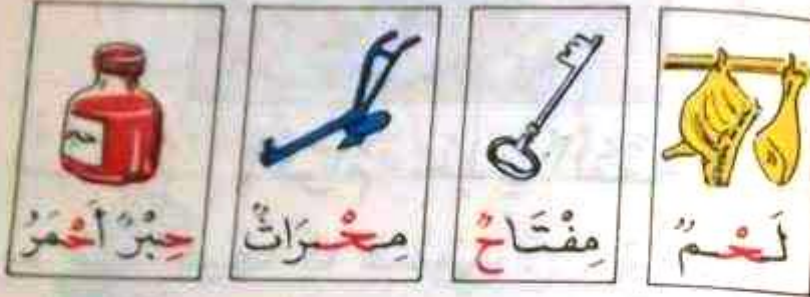 لَحْمٌ
مِفْتَاحٌ
مِحْرَاثٌ
حِبْرٌ أَحْمَرُ
حبر